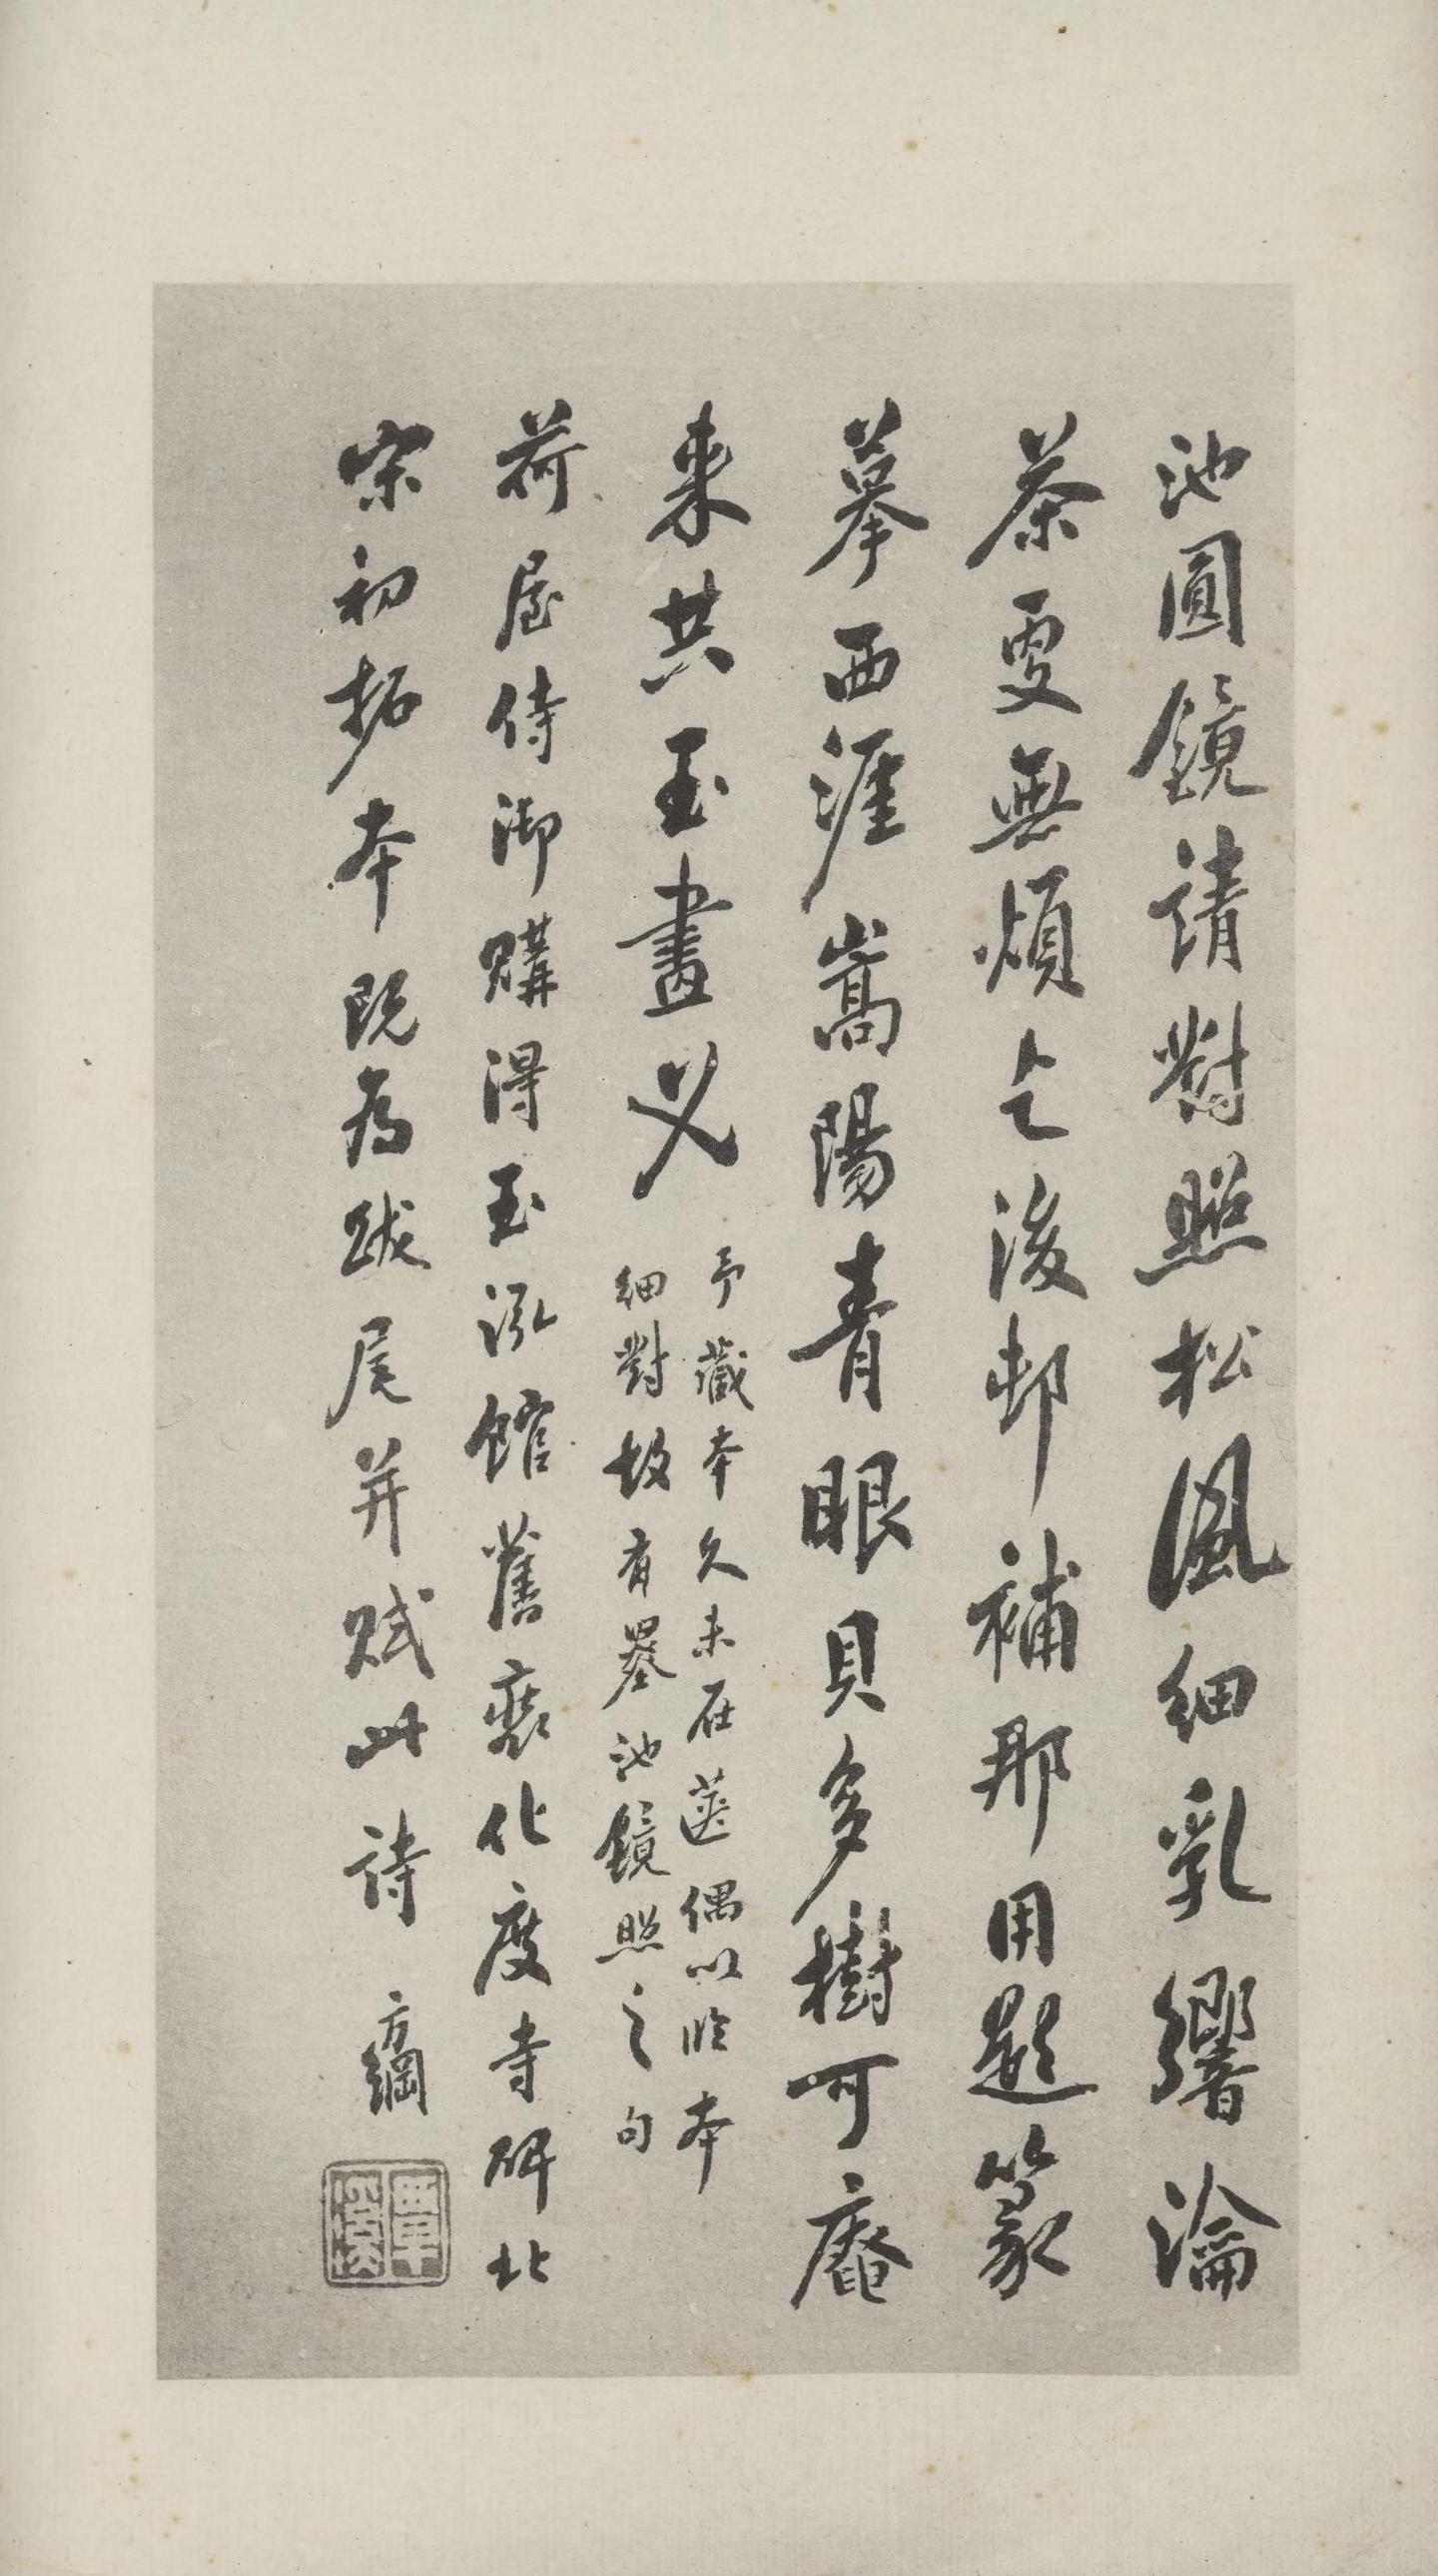 池圓鏡請對照松風細乳響瀹
茶更無煩乞後邨補那用題篆
摹西涯嵩陽青眼貝多樹可庵
來共玉畫义
予藏本久未在篋偶以臨本
細對故有墨池鏡照之句
荷屋侍御購得玉泓館舊裘化度寺碑北
宗初拓本既為跋尾并賦此詩 方綱
覃溪